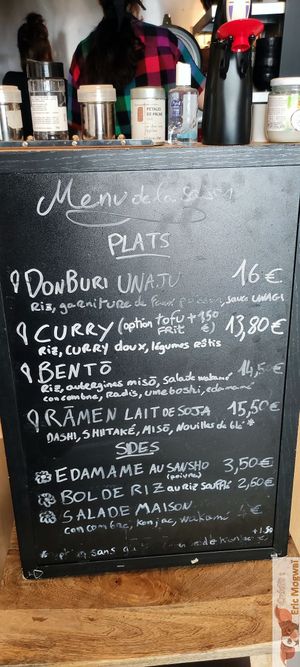 PÉTALES
DE PIMENT
Menu de la saison
PLATS
DONBURI UNAJU 16 €
Riz, garniture de faux poisson, sauce UNAGI
CURRY (option tofu + 1,50
FRIT €) 13,80 €
Riz, CURRY doux, légumes rôtis
BENTŌ 14,5 €
Riz, aubergines miso, salade wakamé
concombre, Radis, umeboshi, edamamé
RĀMEN LAIT DE SOJA 15,50 €
DASHI, SHIITAKÉ, MISO, Nouilles de blé *
SIDES
EDAMAME AU SANSHO 3,50 €
(poivre)
BOL DE RIZ au Riz soufflé 2,60 €
SALADE MAISON €
concombre, Konjac, Wakamé
sans +1.50
Eric Mogwai